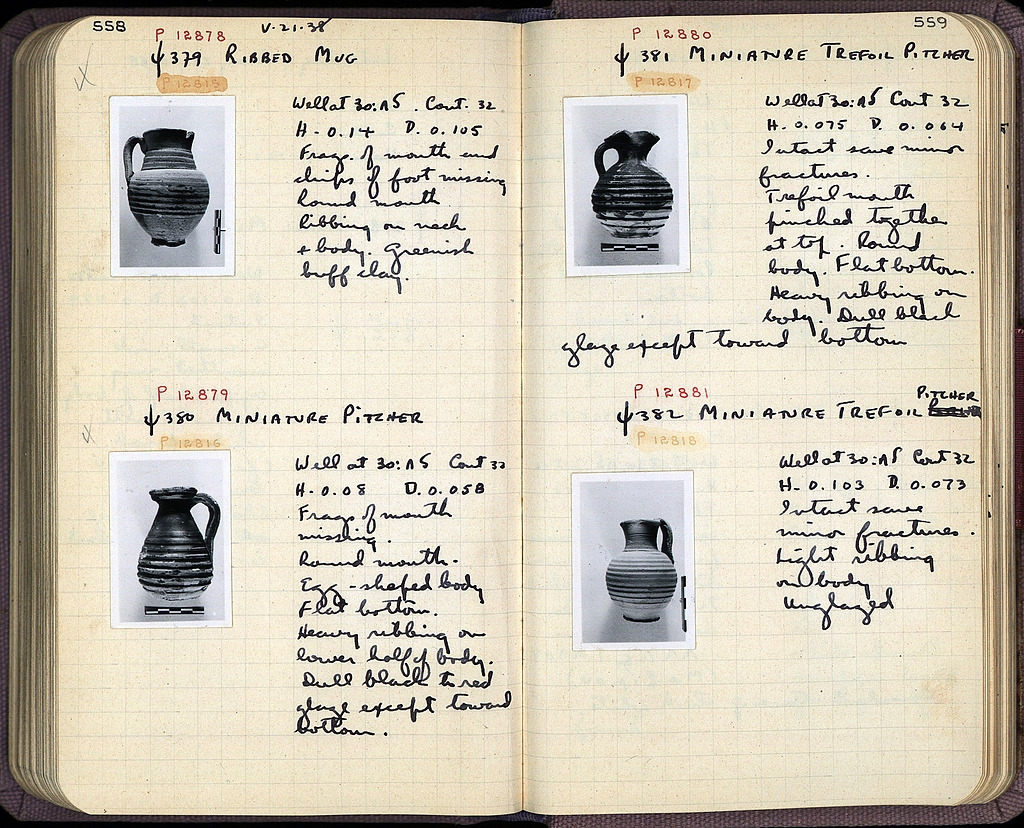 558
V·21·38
P 12878
ψ379 RIBBED MUG
P 12815
Well at 30:ΛΣ. Cont. 32
H - 0.14 D. 0.105
Frags. of mouth and
chips of foot missing
Round mouth.
Ribbing on neck
& body. Greenish
buff clay.
P 12879
ψ380 MINIATURE PITCHER
P 12816
Well at 30:ΛΣ Cont 32
H - 0.08 D. 0.058
Frags of mouth
missing.
Round mouth.
Egg-shaped body
Flat bottom.
Heavy ribbing on
lower half of body.
Dull black to red
glaze except toward
bottom.
559
P 12880
ψ381 MINIATURE TREFOIL PITCHER
P 12817
Well at 30:ΛΣ Cont 32
H - 0.075 D. 0.064
Intact save minor
fractures.
Trefoil mouth
pinched together
at top. Round
body. Flat bottom.
Heavy ribbing on
body. Dull black
glaze except toward bottom
P 12881
PITCHER
ψ382 MINIATURE TREFOIL
P 12818
Well at 30:ΛΣ Cont 32
H - 0.103 D. 0.073
Intact save
minor fractures.
Light ribbing
on body
Unglazed